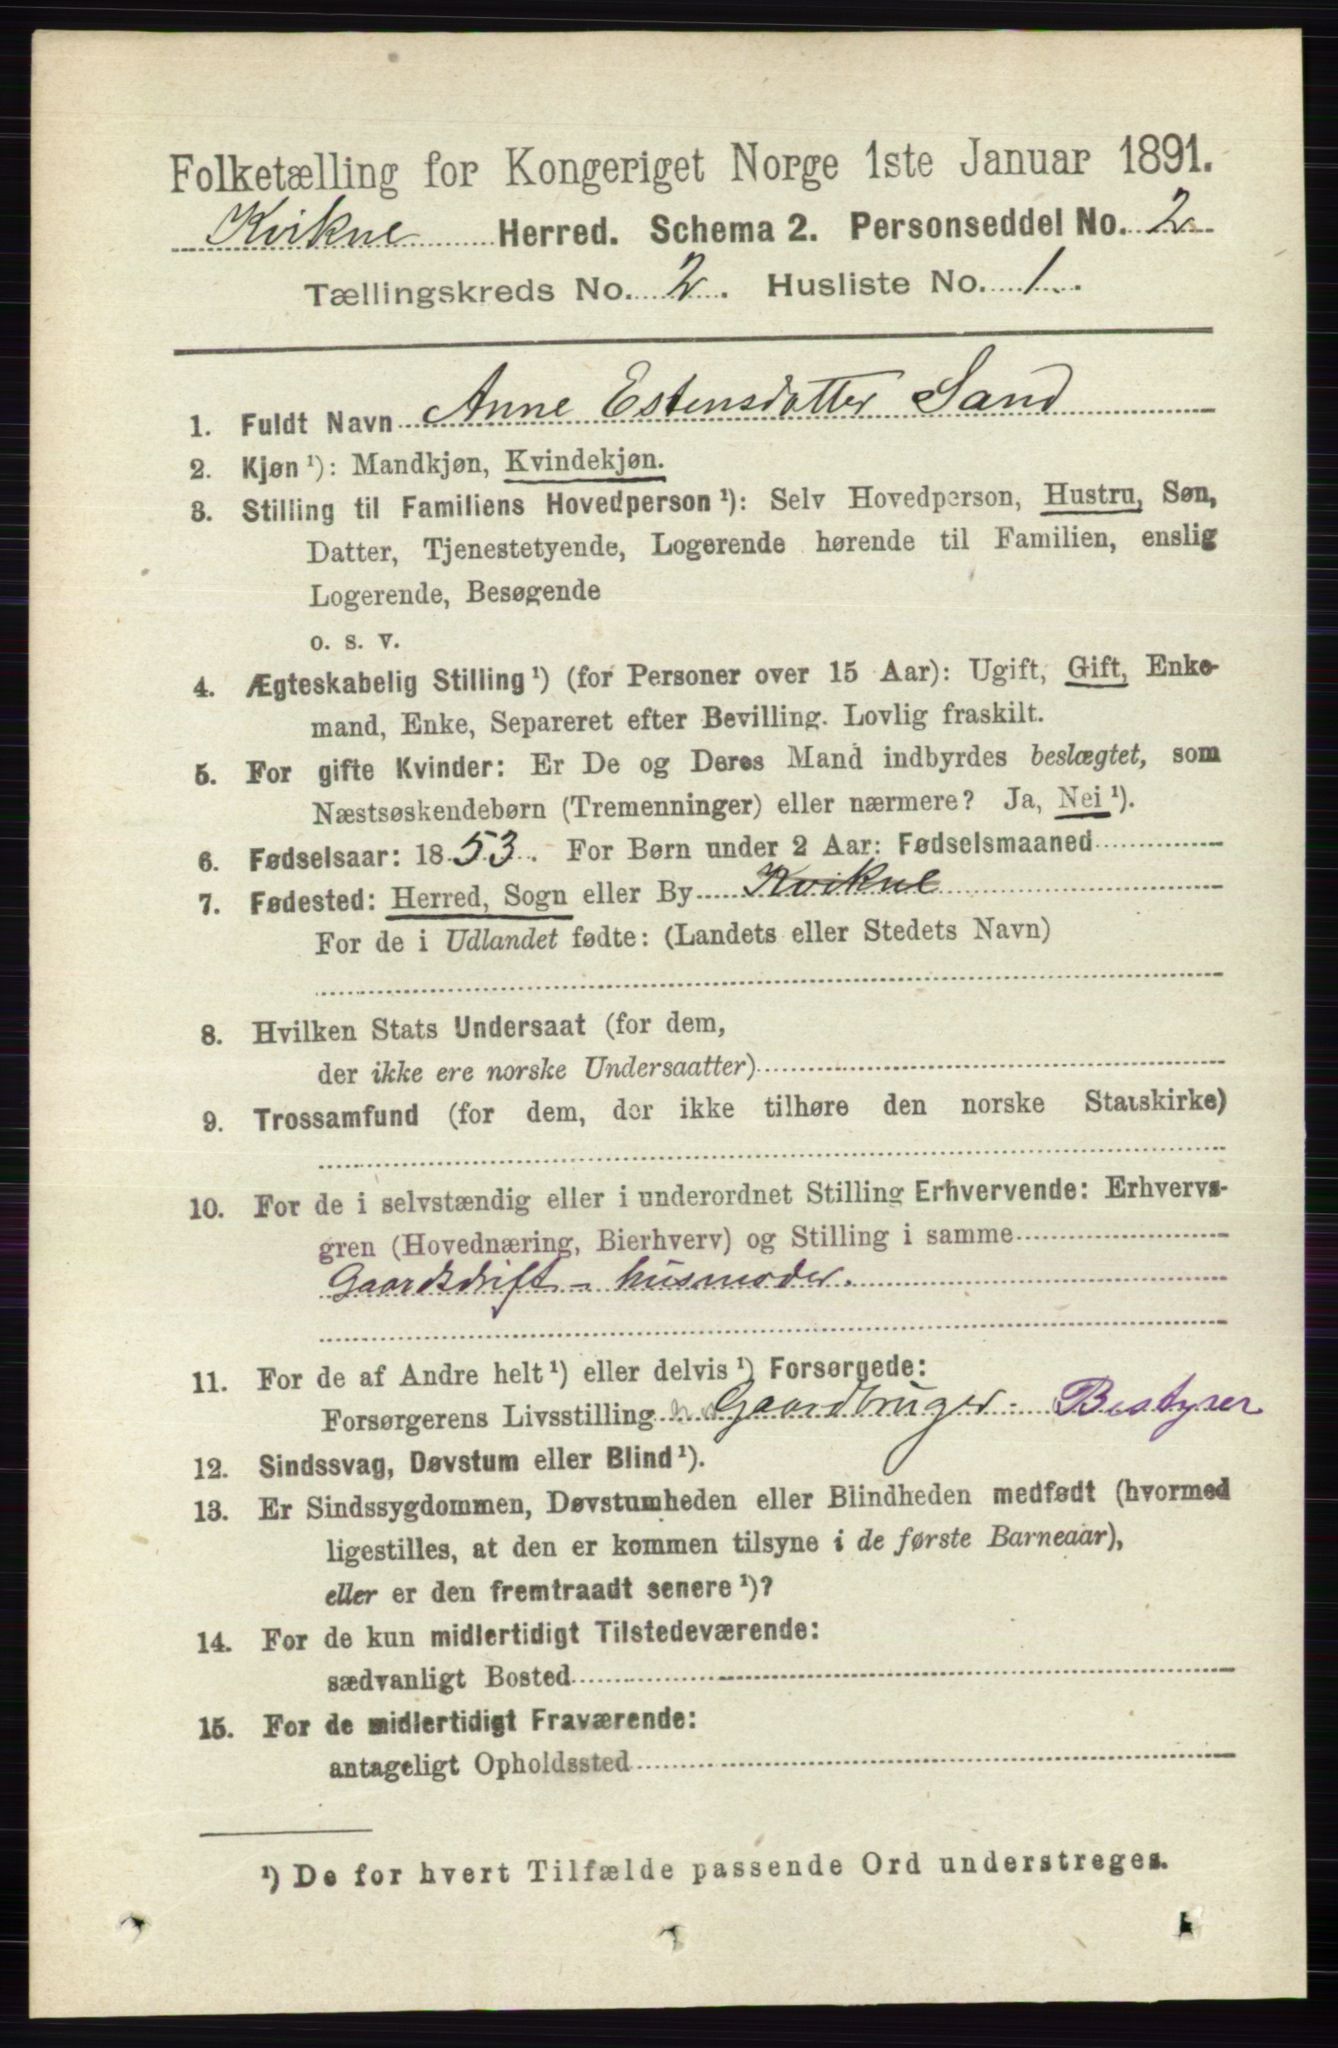 Folketælling for Kongeriget Norge 1ste Januar 1891.
Kvikne Herred. Schema 2. Personseddel No. 2
Tællingskreds No. 2. Husliste No. 1.
1. Fuldt Navn Anne Estensdatter Sand
2. Kjøn ¹): Mandkjøn, Kvindekjøn.
3. Stilling til Familiens Hovedperson ¹): Selv Hovedperson, Hustru, Søn,
Datter, Tjenestetyende, Logerende hørende til Familien, enslig
Logerende, Besøgende
o. s. v.
4. Ægteskabelig Stilling ¹) (for Personer over 15 Aar): Ugift, Gift, Enke-
mand, Enke, Separeret efter Bevilling. Lovlig fraskilt.
5. For gifte Kvinder: Er De og Deres Mand indbyrdes beslægtet, som
Næstsøskendebørn (Tremenninger) eller nærmere? Ja, Nei ¹).
6. Fødselsaar: 1853. For Børn under 2 Aar: Fødselsmaaned
7. Fødested: Herred, Sogn eller By Kvikne
For de i Udlandet fødte: (Landets eller Stedets Navn)
8. Hvilken Stats Undersaat (for dem,
der ikke ere norske Undersaatter)
9. Trossamfund (for dem, der ikke tilhøre den norske Statskirke)
10. For de i selvstændig eller i underordnet Stilling Erhvervende: Erhvervs-
gren (Hovednæring, Bierhverv) og Stilling i samme
Gaardsdrift - husmoder.
11. For de af Andre helt ¹) eller delvis ¹) Forsørgede:
Forsørgerens Livsstilling Gaardbruger. Bestyrer
12. Sindssvag, Døvstum eller Blind ¹).
13. Er Sindssygdommen, Døvstumheden eller Blindheden medfødt (hvormed
ligestilles, at den er kommen tilsyne i de første Barneaar),
eller er den fremtraadt senere ¹)?
14. For de kun midlertidigt Tilstedeværende:
sædvanligt Bosted
15. For de midlertidigt Fraværende:
antageligt Opholdssted
¹) De for hvert Tilfælde passende Ord understreges.